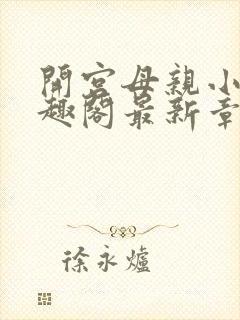 開宮母親小
趣閣最新章
徐永爐